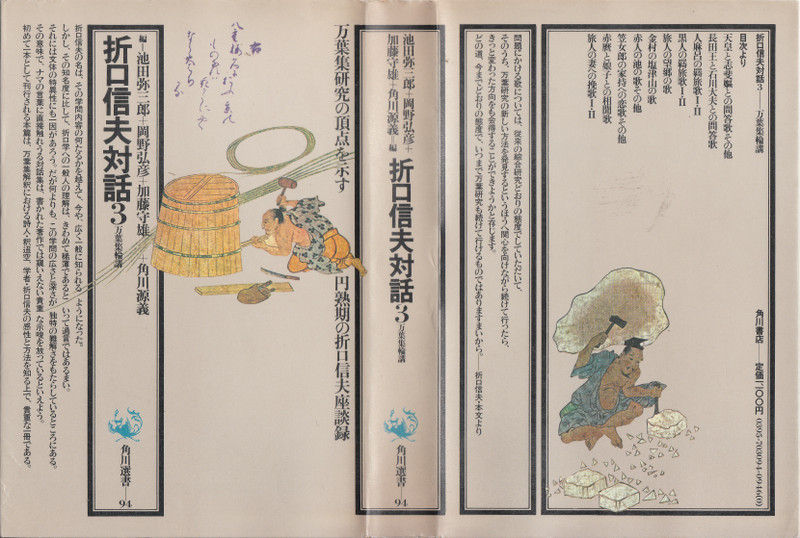 折口信夫対話3──万葉集輪講
目次より
天皇と志斐嫗との問答歌その他
長田王と石川大夫との問答歌
人麻呂の羇旅歌Ⅰ・Ⅱ
黒人の羇旅歌Ⅰ・Ⅱ
旅人の望郷の歌
金村の塩津山の歌
赤人の池の歌その他
笠女郎の家持への恋歌その他
赤麿と娘子との相聞歌
旅人の妻への挽歌Ⅰ・Ⅱ
角川書店
定価
(0395-703094-0946(0)
問題にかける歌については、従来の綜合研究どおりの態度でしていただいて、
そのうち、万葉研究の新しい方法を発見するというほうへ関心を向けながら続けて行ったら、
きっと変わった方向をも会得することができようかと存じます。
どの道、今までどおりの態度で、いつまで万葉研究も続けて行けるものではありますまいから。──折口信夫・本文より
池田弥三郎+岡野弘彦+
加藤守雄+角川源義=編
折口信夫対話3
万葉集輪講
角川選書
94
万葉集研究の頂点を示す
円熟期の折口信夫座談録
編=池田弥三郎+岡野弘彦+加藤守雄+角川源義
折口信夫対話3
万葉集輪講
角川選書
94
折口信夫の名は、その学問内容の何たるかを越えて、今や、広く一般に知られるようになった。
しかし、その知名度に比して、折口学への一般人の理解は、きわめて稀薄であるといって過言ではあるまい。
それには文体の特異性にも一因があろう。だが何よりも、この学問の広さと深さが、独特の難解さをもたらしているところにある。
その意味で、ナマの言葉に直接触れうる対話集は、書かれた著作では窺いえない貴重な示唆を放っているといえよう。
初めて一本として刊行される本篇は、万葉集解釈における詩人・釈迢空、学者・折口信夫の感性と方法を知る上で、貴重な一冊である。